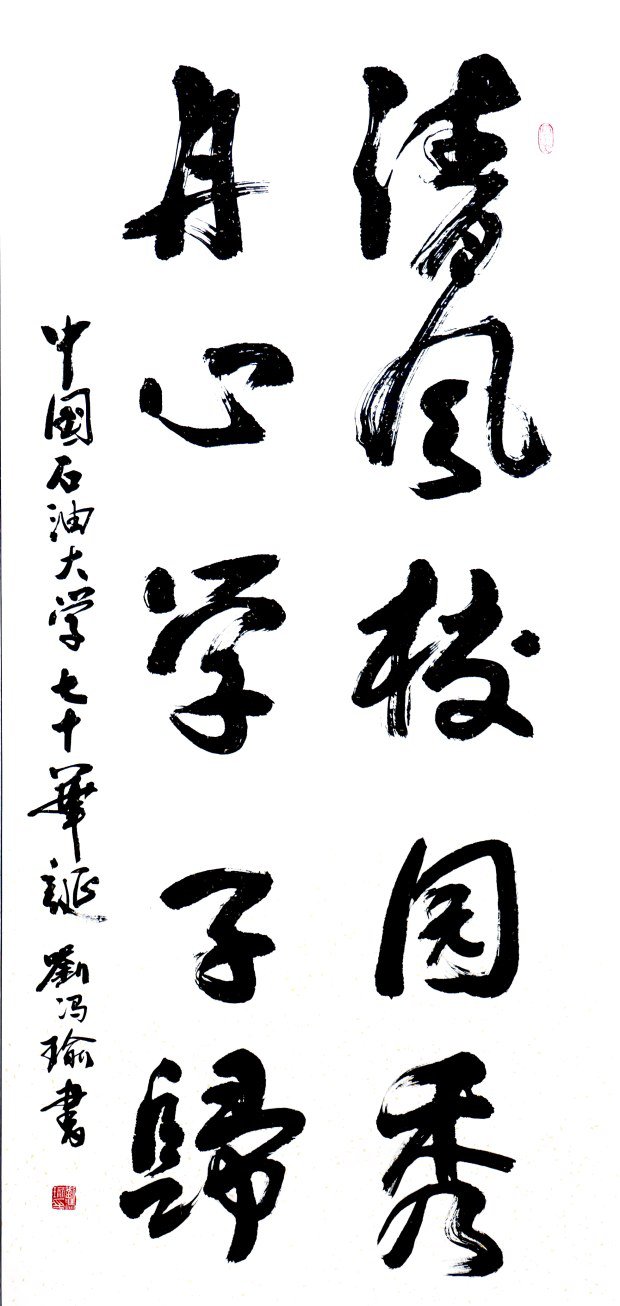 清风校园秀
丹心学子歸
中國石油大学七十華誕 劉冯瑜書